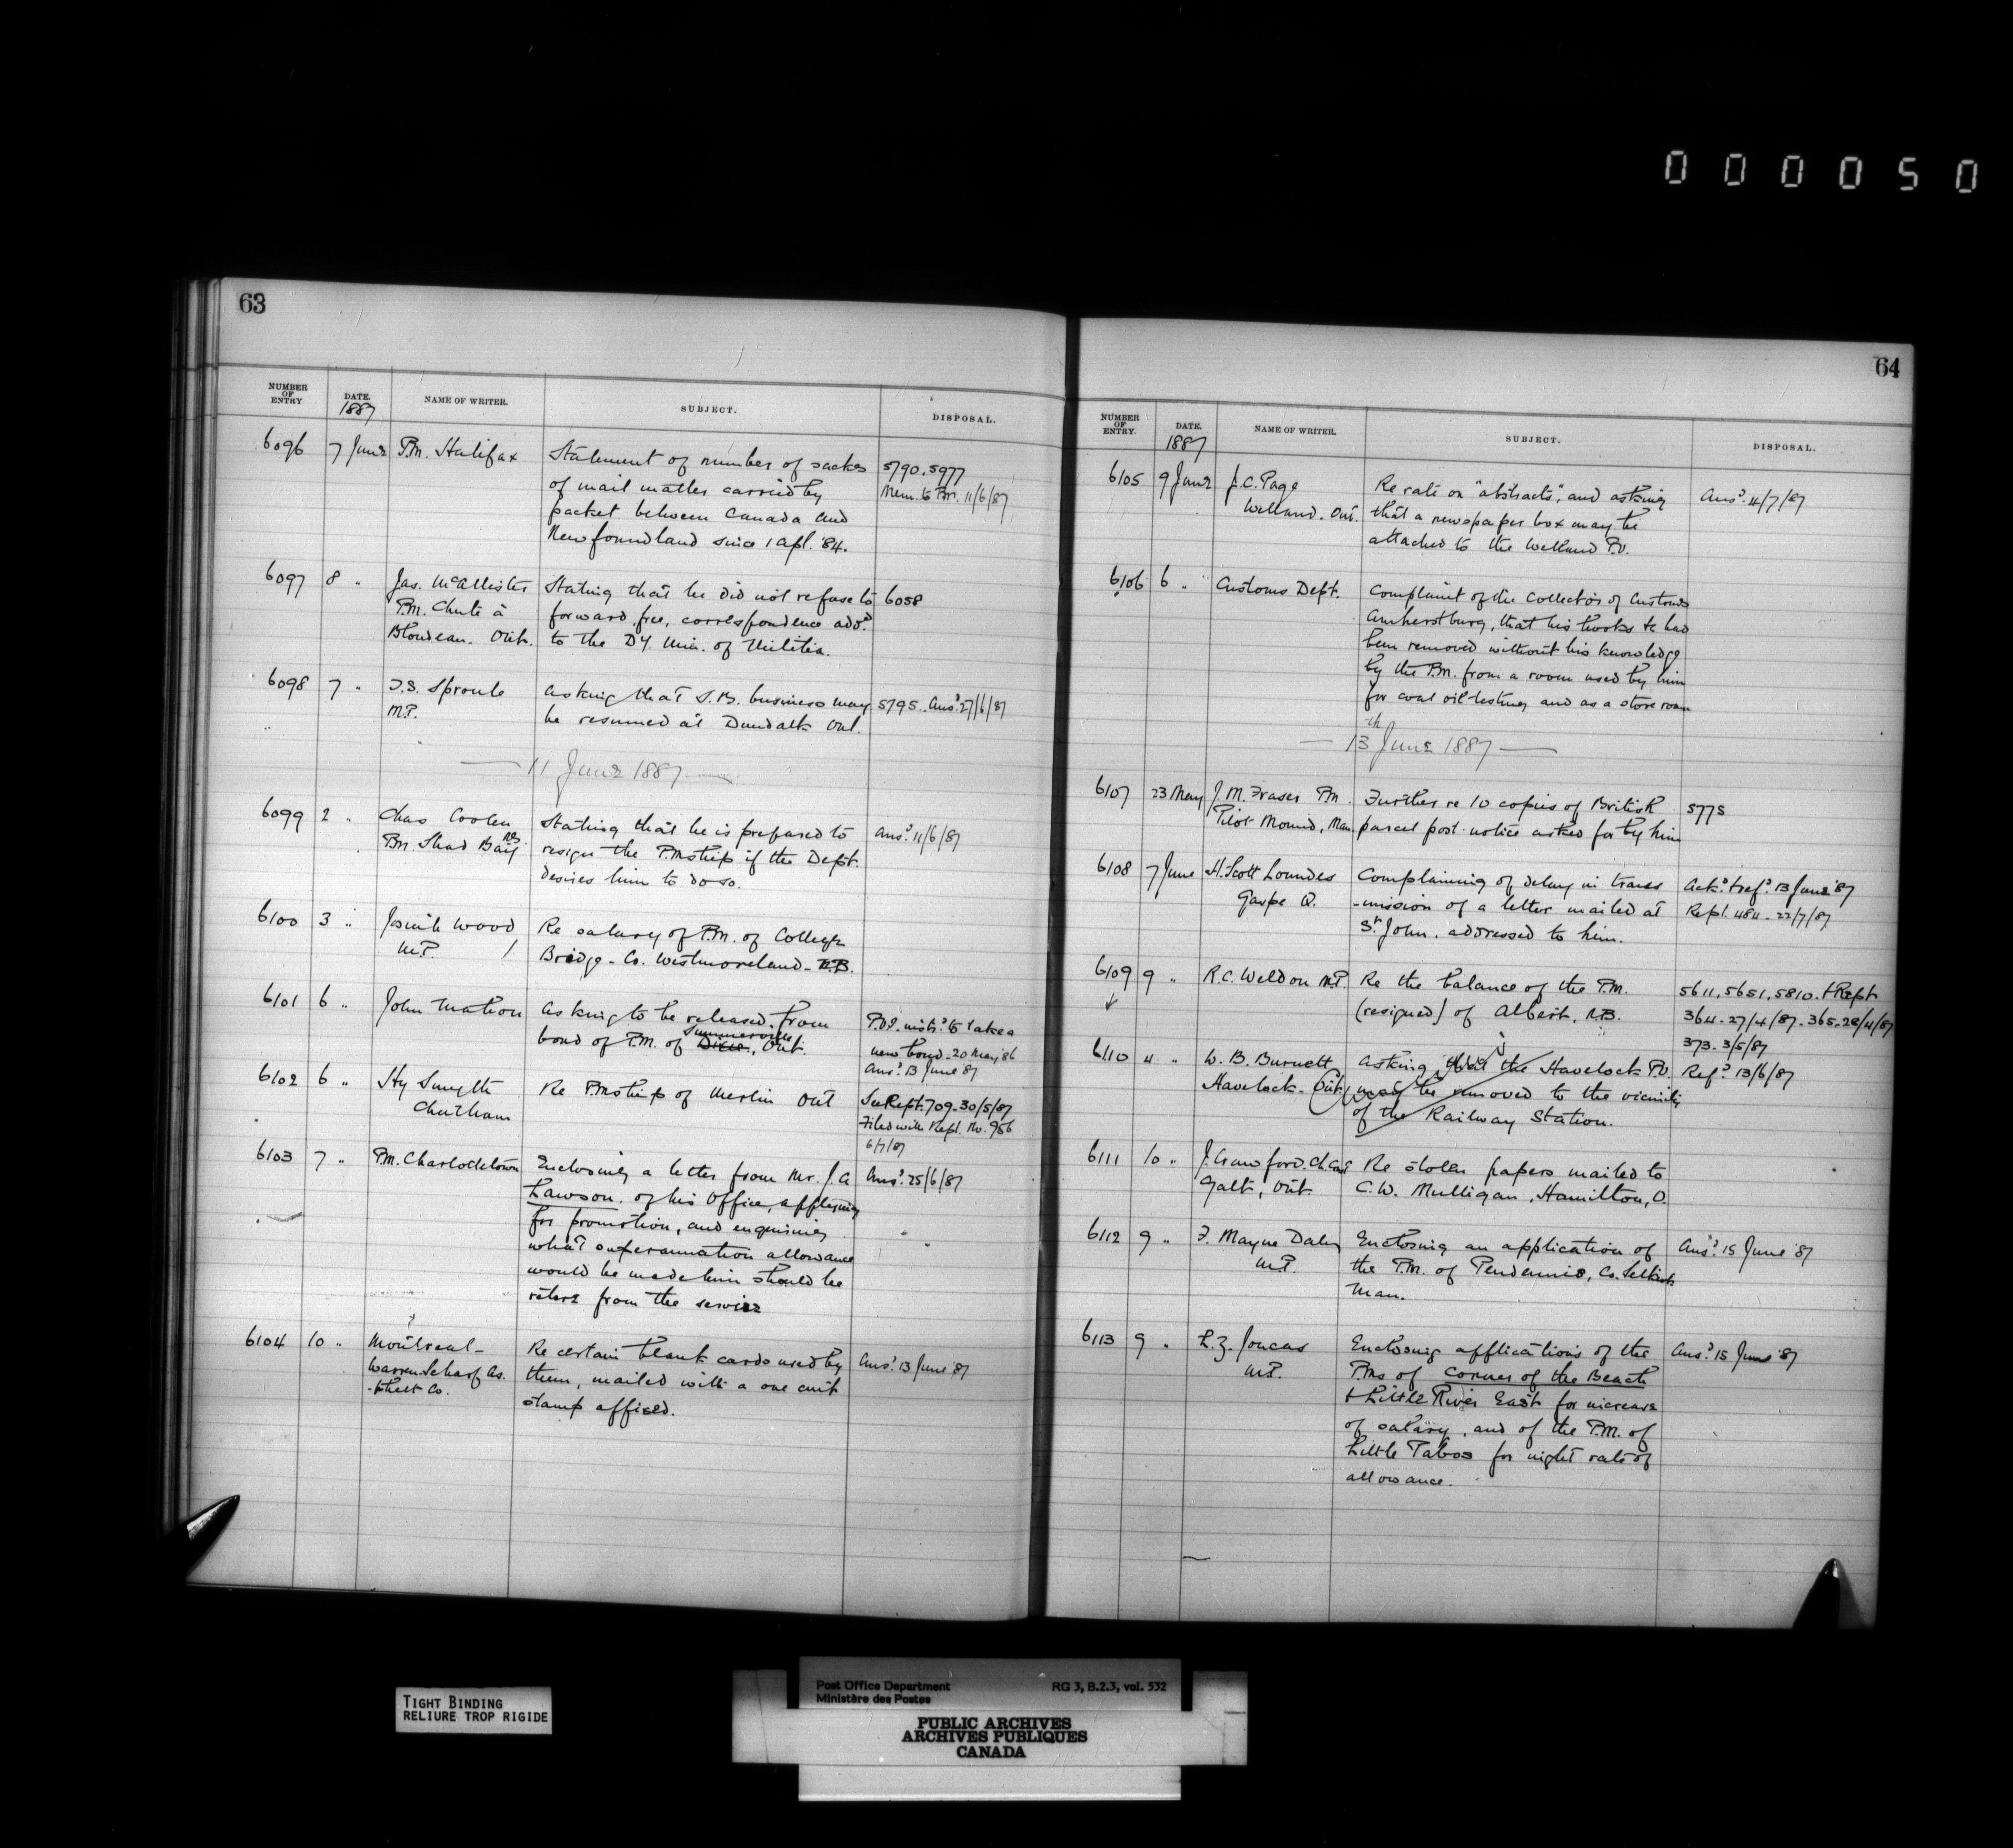 000050
63
NUMBER OF ENTRY. DATE. 1887 NAME OF WRITER. SUBJECT. DISPOSAL.
6096 7 June P.M. Halifax Statement of number of sacks 5790.5977
of mail matter carried by Mem. to P.M. 11/6/87
packet between Canada and
Newfoundland since 1 Apl. '84.
6097 8 " Jas. McAllister Stating that he did not refuse to 6058
P.M. Chute à forward, free, correspondence addd.
Blondeau. Ont. to the Dy. Min. of Militia.
6098 7 " T.S. Sproule asking that S.B. business may 5795. Ansd. 27/6/87
M.P. be resumed at Dundalk Ont.
— 11 June 1887 —
6099 2 " Chas Coolen Stating that he is prepared to Ansd. 11/6/87
Pm. Shad Bay NS resign the P.Mship if the Dept.
desires him to do so.
6100 3 " Josiah Wood Re salary of P.M. of College
M.P. Bridge - Co. Westmoreland - N.B.
6101 6 " John Mation asking to be released from P.O.I. instd. to take a
bond of P.M. of Dixie, Summerville Ont. new bond - 20 May '86
Ansd. 13 June '87
6102 6 " Hy Smyth Re P.Mship of Merlin Ont See Rept. 709 - 30/5/87
Chatham Filed with Rept. No. 956
6/7/87
6103 7 " P.M. Charlottetown Enclosing a letter from Mr. J. A Ansd. 25/6/87
Lawson. of his Office, applying
for promotion, and enquiring
what superannuation allowance
would be made him should he
retire from the service
6104 10 " Montreal - Re certain blank cards used by Ansd. 13 June '87
Warren-Scharf As- them, mailed with a one cent
-phalt Co. stamp affixed.
64
NUMBER OF ENTRY. DATE. 1887 NAME OF WRITER. SUBJECT. DISPOSAL.
6105 9 June J.C. Page Re rate on "abstracts", and asking Ansd. 4/7/87
Welland. Ont. that a newspaper box may be
attached to the Welland P.O.
6106 6 " Customs Dept. Complaint of the Collector of Customs
Amherstburg, that his books &c had
been removed without his knowledge
by the P.M. from a room used by him
for coal oil testing and as a store room
— 13th June 1887 —
6107 23 May J. M. Fraser Pm Further re 10 copies of British 5775
Pilot Mound, Man. parcel post notice asked for by him
6108 7 June H. Scott Lowndes Complaining of delay in trans Ackd. & refd. 13 June '87
Gaspe Q. -mission of a letter mailed at Rept. 484 - 22/7/87
St. John. addressed to him.
6109 9 " R.C. Weldon M.P. Re the balance of the P.M. 5611, 5651, 5810. & Rept
(resigned) of Albert, N.B. 364 - 27/4/87 - 365 - 28/4/87
373 - 3/5/87
6110 4 " W. B. Burnett asking that the Havelock P.O. Refd. 13/6/87
Havelock. Ont. may be removed to the vicinity
of the Railway Station.
6111 10 " J. Crawford. Ch. Con Re stolen papers mailed to
Galt, Ont. C.W. Mulligan, Hamilton, O.
6112 9 " T. Mayne Daly Enclosing an application of Ansd. 15 June '87
M.P. the P.M. of Pendennis, Co. Selkirk
Man.
6113 9 " L.Z. Joncas Enclosing applications of the Ansd. 15 June '87
M.P. P.Ms of Corner of the Beach
& Little River East for increase
of salary, and of the P.M. of
Little Pabos for night rate of
allowance.
TIGHT BINDING
RELIURE TROP RIGIDE
Post Office Department RG 3, B.2.3, vol. 532
Ministère des Postes
PUBLIC ARCHIVES
ARCHIVES PUBLIQUES
CANADA